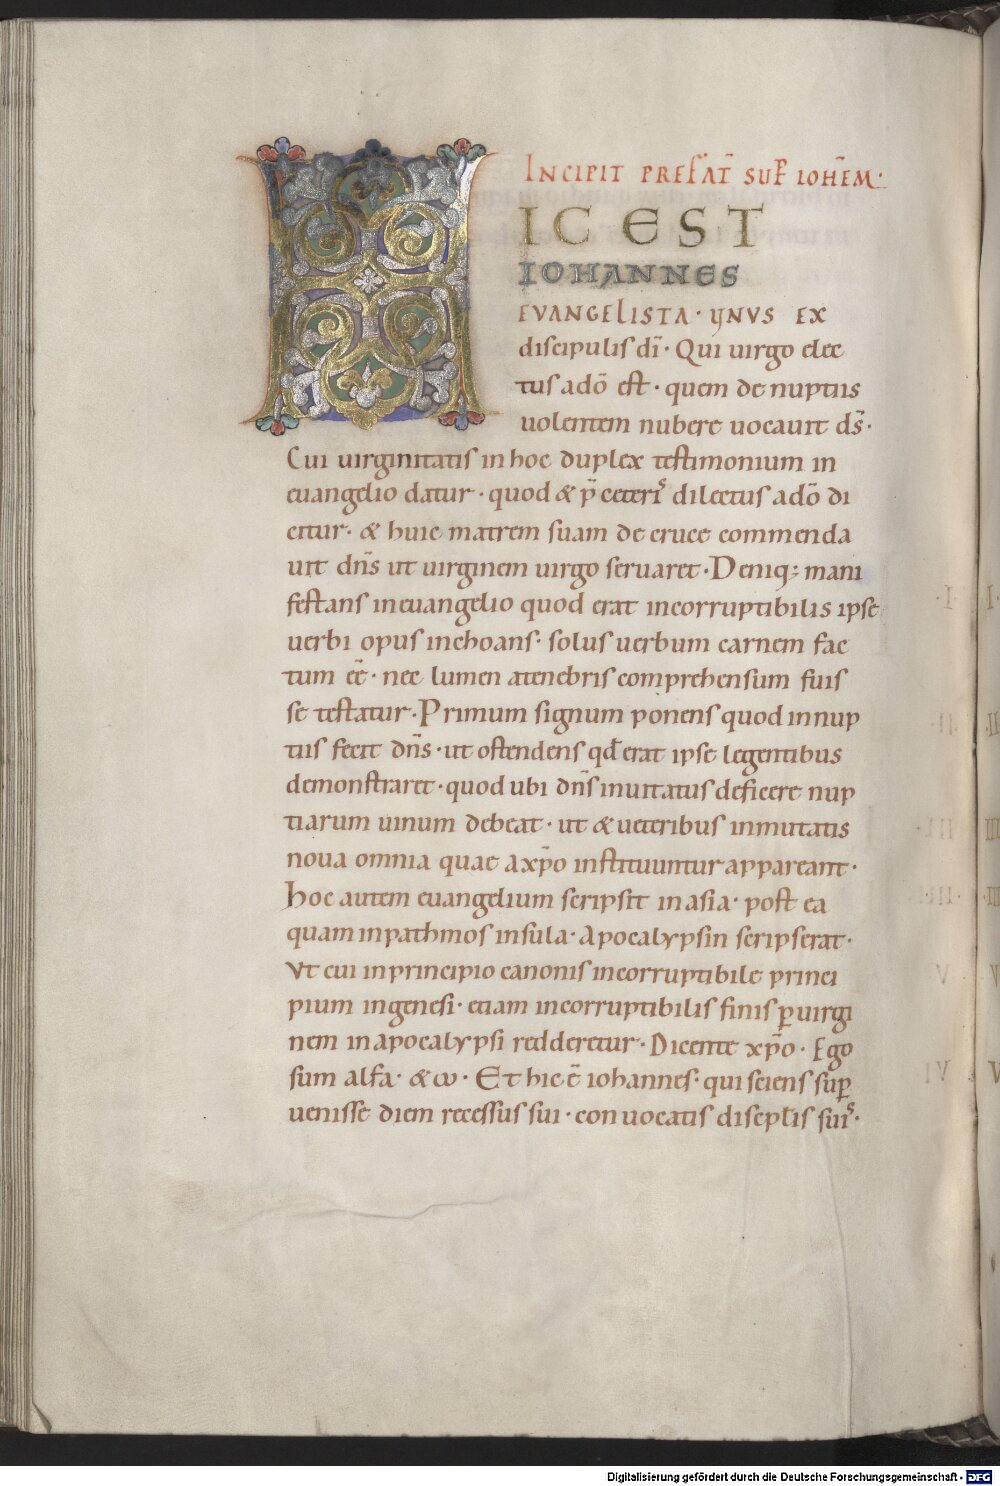 INCIPIT PREFAT̄ SUP̄ IOHĒM·
HIC EST
IOHANNES
EVANGELISTA · VNVS EX
discipulis dī · Qui virgo elec
tus adō est · quem de nuptiis
uolentem nubere uocauit ds̄ ·
Cui uirginitatis in hoc duplex testimonium in
euangelio datur · quod & p̄ ceteris dilectus adō di
citur · & huic matrem suam de cruce commenda
uit dn̄s ut uirginem uirgo seruaret · Deniq; mani
festans in euangelio quod erat incorruptibilis ipse
uerbi opus inchoans · solus uerbum carnem fac
tum eē · nec lumen a tenebris comprehensum fuis
se testatur · Primum signum ponens quod in nup
tiis fecit dn̄s · ut ostendens qđ erat ipse legentibus
demonstraret · quod ubi dn̄s inuitatus deficere nup
tiarum uinum debeat · ut & ueteribus inmutatis
noua omnia quae a xp̄o instituuntur appareant ·
Hoc autem euangelium scripsit in asia · post ea
quam in pathmos insula · Apocalypsin scripserat ·
Vt cui in principio canonis incorruptibile princi
pium in genesi · etiam incorruptibilis finis ꝑ uirgi
nem in apocalypsi redderetur · Dicente xp̄o · Ego
sum alfa · & ω · Et hic ē iohannes · qui sciens suꝑ
uenisse diem recessus sui · conuocatis discipłis suis ·
Digitalisierung gefördert durch die Deutsche Forschungsgemeinschaft - DFG